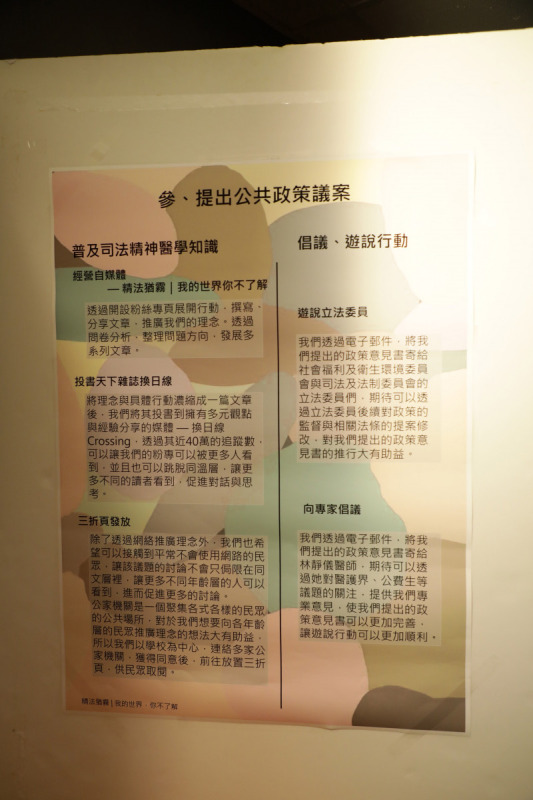 參、提出公共政策議案
普及司法精神醫學知識
經營自媒體
— 精法猶霧 | 我的世界你不了解
透過開設粉絲專頁展開行動，撰寫、
分享文章，推廣我們的理念。透過
問卷分析，整理問題方向，發展多
系列文章。
投書天下雜誌換日線
將理念與具體行動濃縮成一篇文章
後，我們將其投書到擁有多元觀點
與經驗分享的媒體 — 換日線
Crossing，透過其近40萬的追蹤數，
可以讓我們的粉專可以被更多人看
到，並且也可以跳脫同溫層，讓更
多不同的讀者看到，促進對話與思
考。
三折頁發放
除了透過網絡推廣理念外，我們也希
望可以接觸到平常不會使用網路的民
眾，讓該議題的討論不會只侷限在同
文層裡，讓更多不同年齡層的人可以
看到，進而促進更多的討論。
公家機關是一個聚集各式各樣的民眾
的公共場所，對於我們想要向各年齡
層的民眾推廣理念的想法大有助益，
所以我們以學校為中心，連絡多家公
家機關，獲得同意後，前往放置三折
頁，供民眾取閱。
精法猶霧 | 我的世界，你不了解
倡議、遊說行動
遊說立法委員
我們透過電子郵件，將我
們提出的政策意見書寄給
社會福利及衛生環境委員
會與司法及法制委員會的
立法委員們，期待可以透
過立法委員後續對政策的
監督與相關法條的提案修
改，對我們提出的政策意
見書的推行大有助益。
向專家倡議
我們透過電子郵件，將我
們提出的政策意見書寄給
林靜儀醫師，期待可以透
過她對醫護界、公費生等
議題的關注，提供我們專
業意見，使我們提出的政
策意見書可以更加完善，
讓遊說行動可以更加順利。